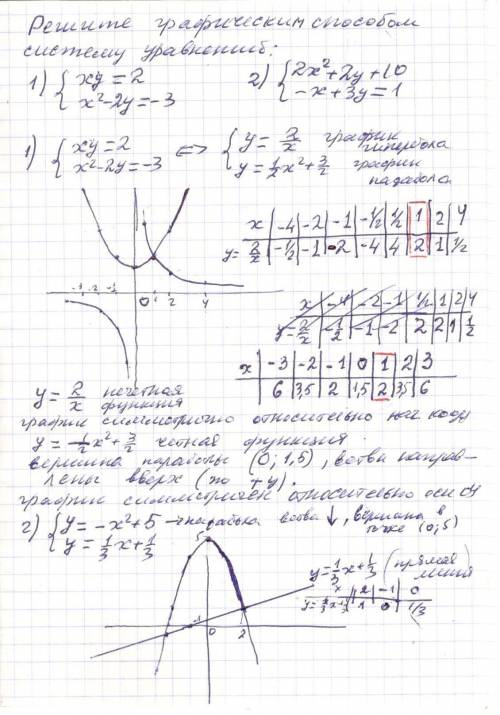 Решите графическим способом
систему уравнений:
1) { xy = 2
x² - 2y = -3
2) { 2x² + 2y + 10
-x + 3y = 1
1) { xy = 2
x² - 2y = -3 <=> { y = 2/x график гипербола
y = 1/2 x² + 3/2 график парабола
x | -4 | -2 | -1 | -1/2 | 1/2 | 1 | 2 | 4
y = 2/x | -1/2 | -1 | -2 | -4 | 4 | 2 | 1 | 1/2
x | -4 | -2 | -1 | 1/2 | 1 | 2 | 4
y = 2/x | -1/2 | -1 | -2 | 2 | 2 | 1 | 1/2
x | -3 | -2 | -1 | 0 | 1 | 2 | 3
6 | 3,5 | 2 | 1,5 | 2 | 3,5 | 6
-2 -1 0 1 2 4
y = 2/x нечетная функция
график симметрично относительно нач коор
y = 1/2 x² + 3/2 четная функция
вершина параболы (0; 1,5), ветви направ-
лены вверх (по +y).
график симметричен относительно оси
2) { y = -x² + 5 → парабола ветви ↓, вершина в точке (0; 5)
y = 1/3 x + 1/3
5
-1 0 2
y = 1/3 x + 1/3 (прямая линия
x | 2 | -1 | 0
y = 1/3 x + 1/3 | 1 | 0 | 1/3